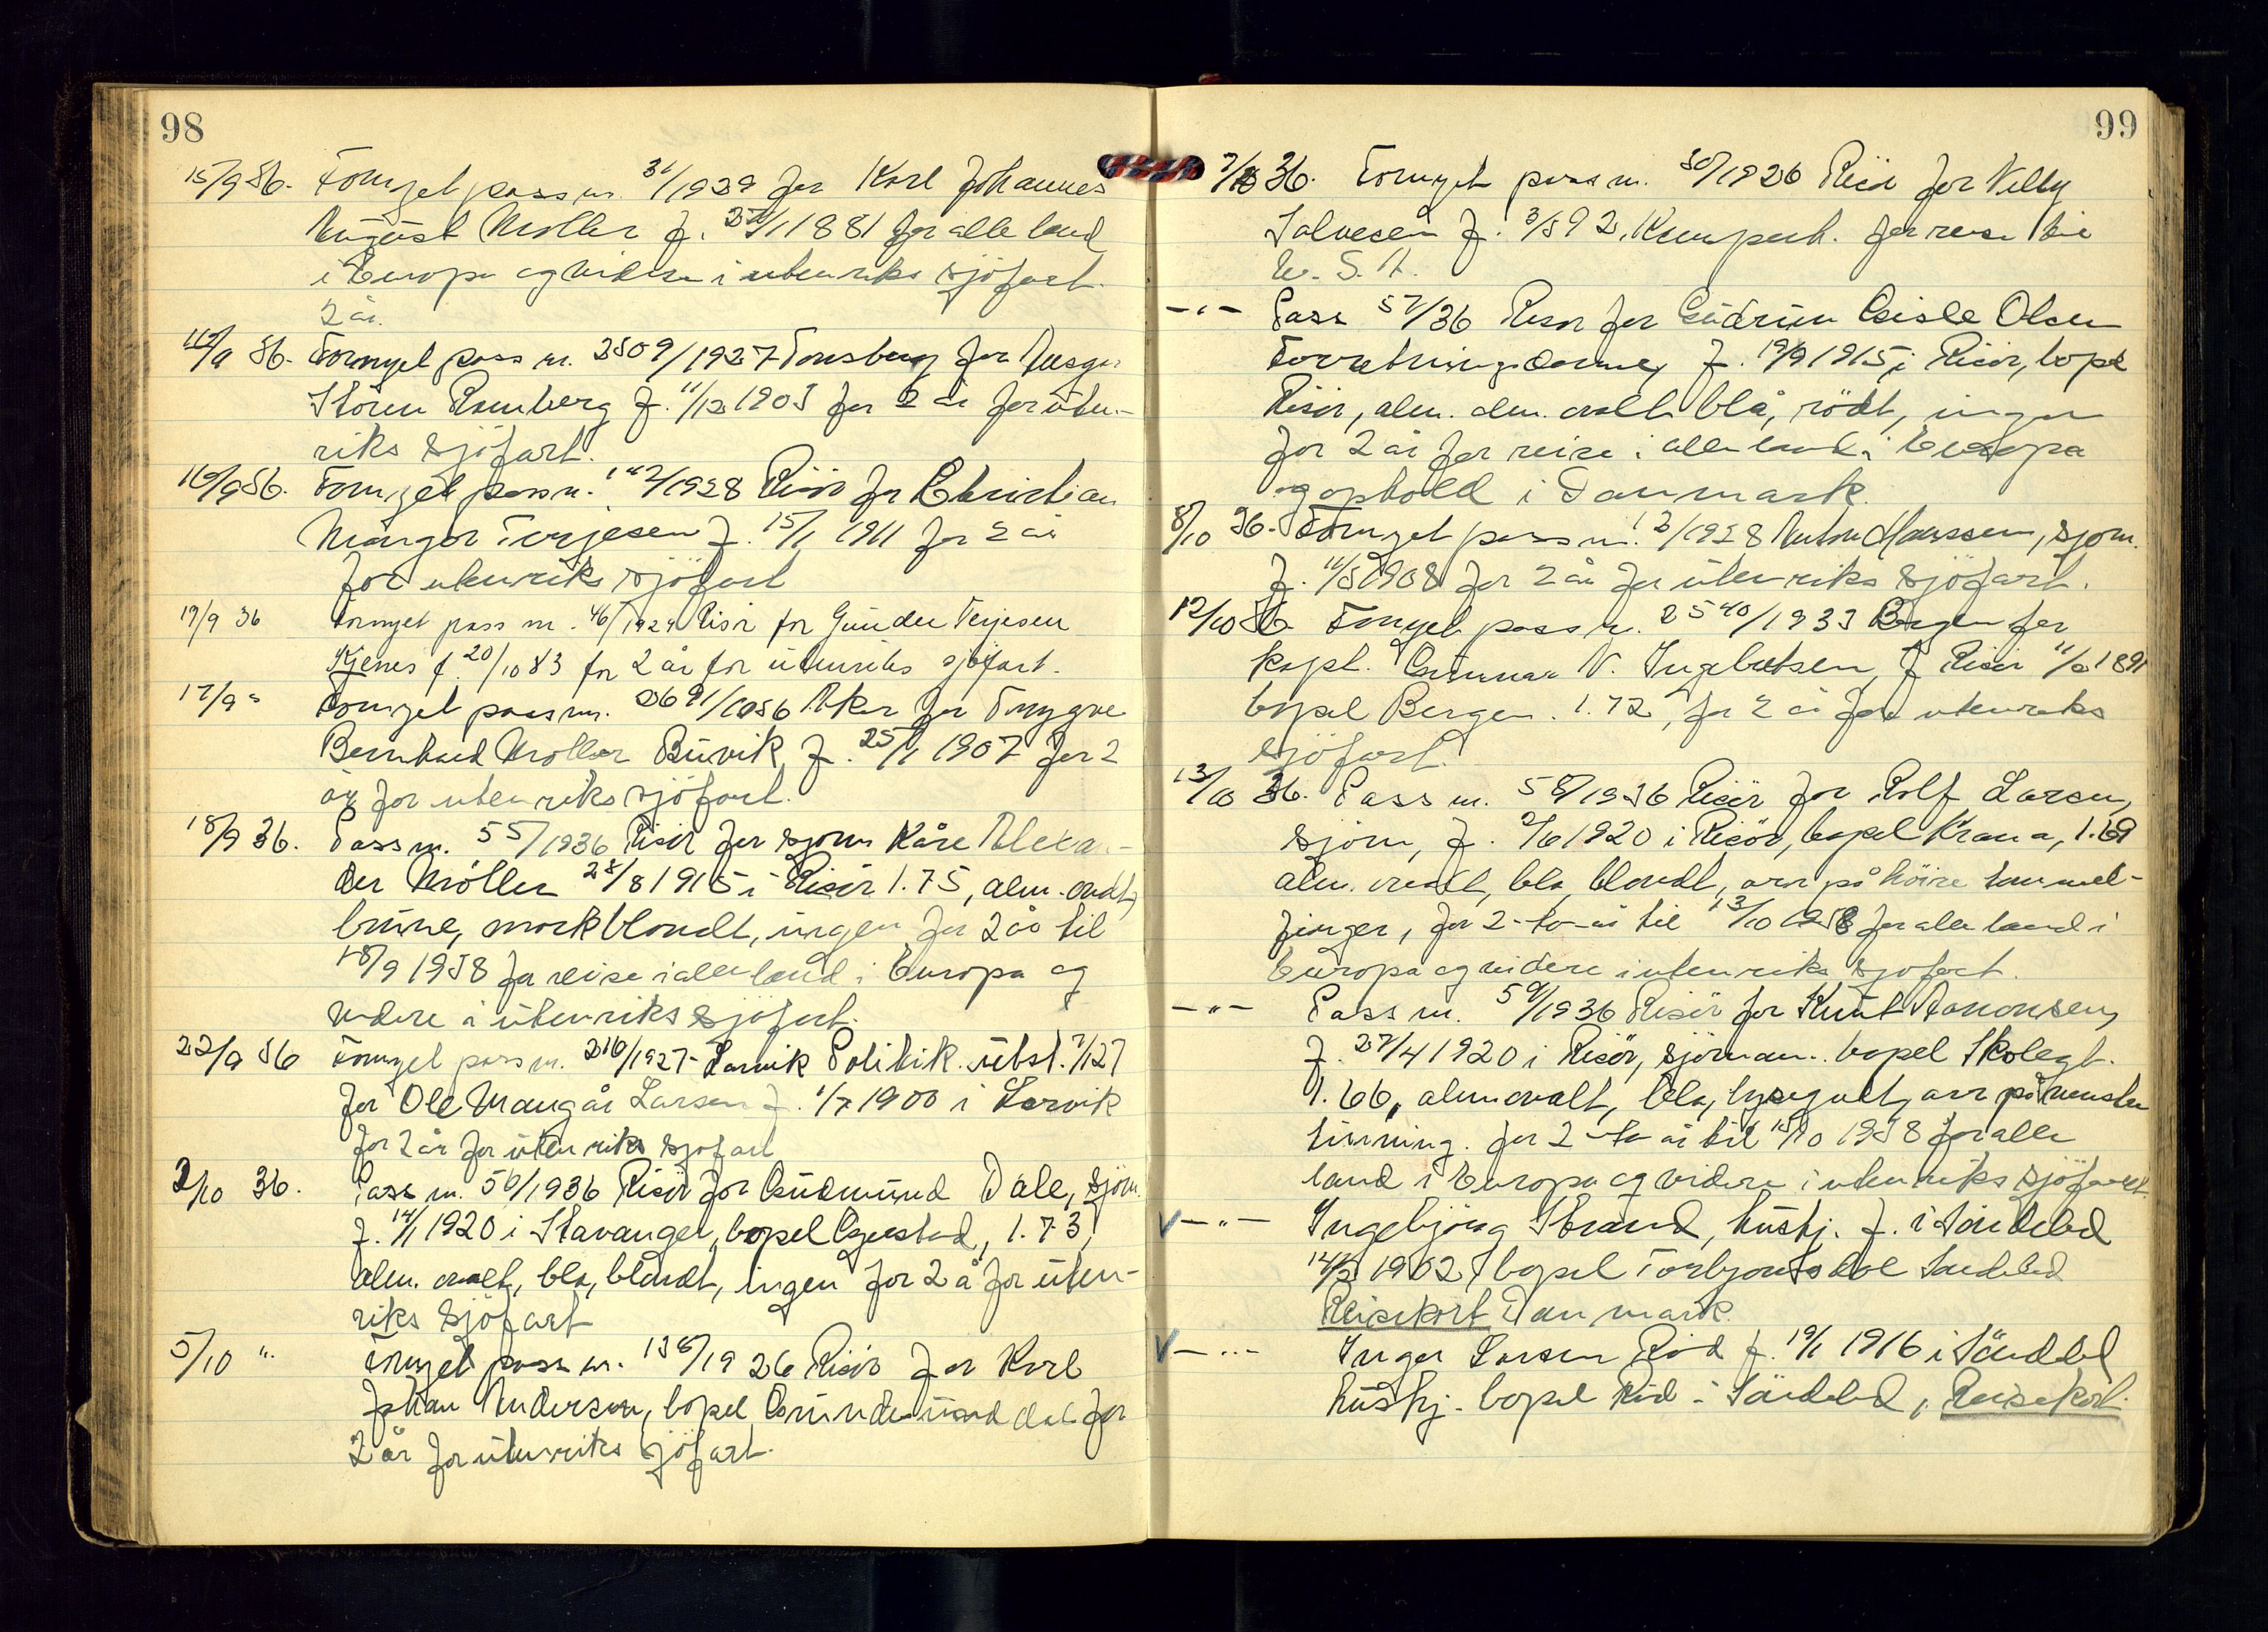 98
15/9 36. Fornyet pass nr. 31/1929 for Karl Johannes
August Møller f. 1881 for alle land
i Europa og videre i utenriks sjöfart.
2 år.
16/9 36. Fornyet pass nr. 2509/1927 Tönsberg for
Stören Romberg f. 11/12 1903 for 2 år for uten-
riks sjöfart.
16/9 36. Fornyet pass nr. /1928 Risör for Christian
Mangor Terjesen f. 15/1 1911 for 2 år
for utenriks sjöfart
17/9 36 Fornyet pass nr. 46/1924 Risör for Gunder Terjesen
Kjenes f. 20/10 83 for 2 år for utenriks sjöfart.
17/9 " Fornyet pass nr. Aker for Trygve
Bernhard Møller Buvik f. 25/1 1907 for 2
år for utenriks sjöfart.
18/9 36. Pass nr. 55/1936 Risör for sjöm Kåre Alexan-
der Möller 28/8 1915 i Risör 1.75, alm. ovalt,
brune, mörkblondt, ingen for 2 år til
18/9 1938 for reise i alle land i Europa og
videre i utenriks sjöfart.
22/9 36 Fornyet pass nr. 216/1927 Larvik Politik. utst. 7/1 27
for Ole Mangår Larsen f. 1/7 1900 i Larvik
for 2 år for utenriks sjöfart
2/10 36. Pass nr. 56/1936 Risör for Gudmund Dale, sjöm.
f. 14/1 1920 i Stavanger, bopel Gjerstad, 1.73,
alm. ovalt, blå, blondt, ingen for 2 å for uten-
riks sjöfart
5/10 ". Fornyet pass nr. 138/1926 Risör for Karl
Johan Anderson, bopel for
2 år for utenriks sjöfart.
99
7/10 36. Fornyet pass nr. 50/1926 Risör for Villy
Salvesen f. 3/5 92, for reise til
U. S. A.
—"— Pass 57/36 Risör for Gudrun Gisle Olsen
Forretningsdame, f. 19/9 1915 i Risör, bopel
Risör, alm. alm. ovalt blå, rödt, ingen
for 2 år for reise i alle land i Europa
og ophold i Danmark.
8/10 36. Fornyet pass nr. 12/1928 Anton Hanssen, sjöm.
f. 11/5 1908 for 2 år for utenriks sjöfart.
12/10 36 Fornyet pass nr. 2540/1933 Bergen for
kapt. Gunnar N. Ingebretsen, f. Risör 11/2 1891
bopel Bergen. 1.72, for 2 år for utenriks
sjöfart.
13/10 36. Pass nr. 58/1936 Risör for Rolf Larsen,
sjöm, f. 2/6 1920 i Risör, bopel Krana, 1.69
alm. ovalt, blå, blondt, arr på höire tommel-
finger, for 2-to-år til 13/10 1938 for alle land i
Europa og videre i utenriks sjöfart.
—"— Pass nr. 59/1936 Risör for Knut Aanonsen,
f. 27/4 1920 i Risör, sjömann. bopel Skolegt.
1.66, alm ovalt, blå, lysegult, arr på venstre
tinning. for 2-to år til 13/10 1938 for alle
land i Europa og videre i utenriks sjöfart
—"— Ingebjörg Strand, hushj. f. i Söndeled
14/2 1902, bopel Torbjörnsdal Söndeled
Reisekort Danmark.
—"— Inger Larsen Röd f. 19/1 1916 i Söndeled
hushj. bopel Röd i Söndeled, Reisekort.